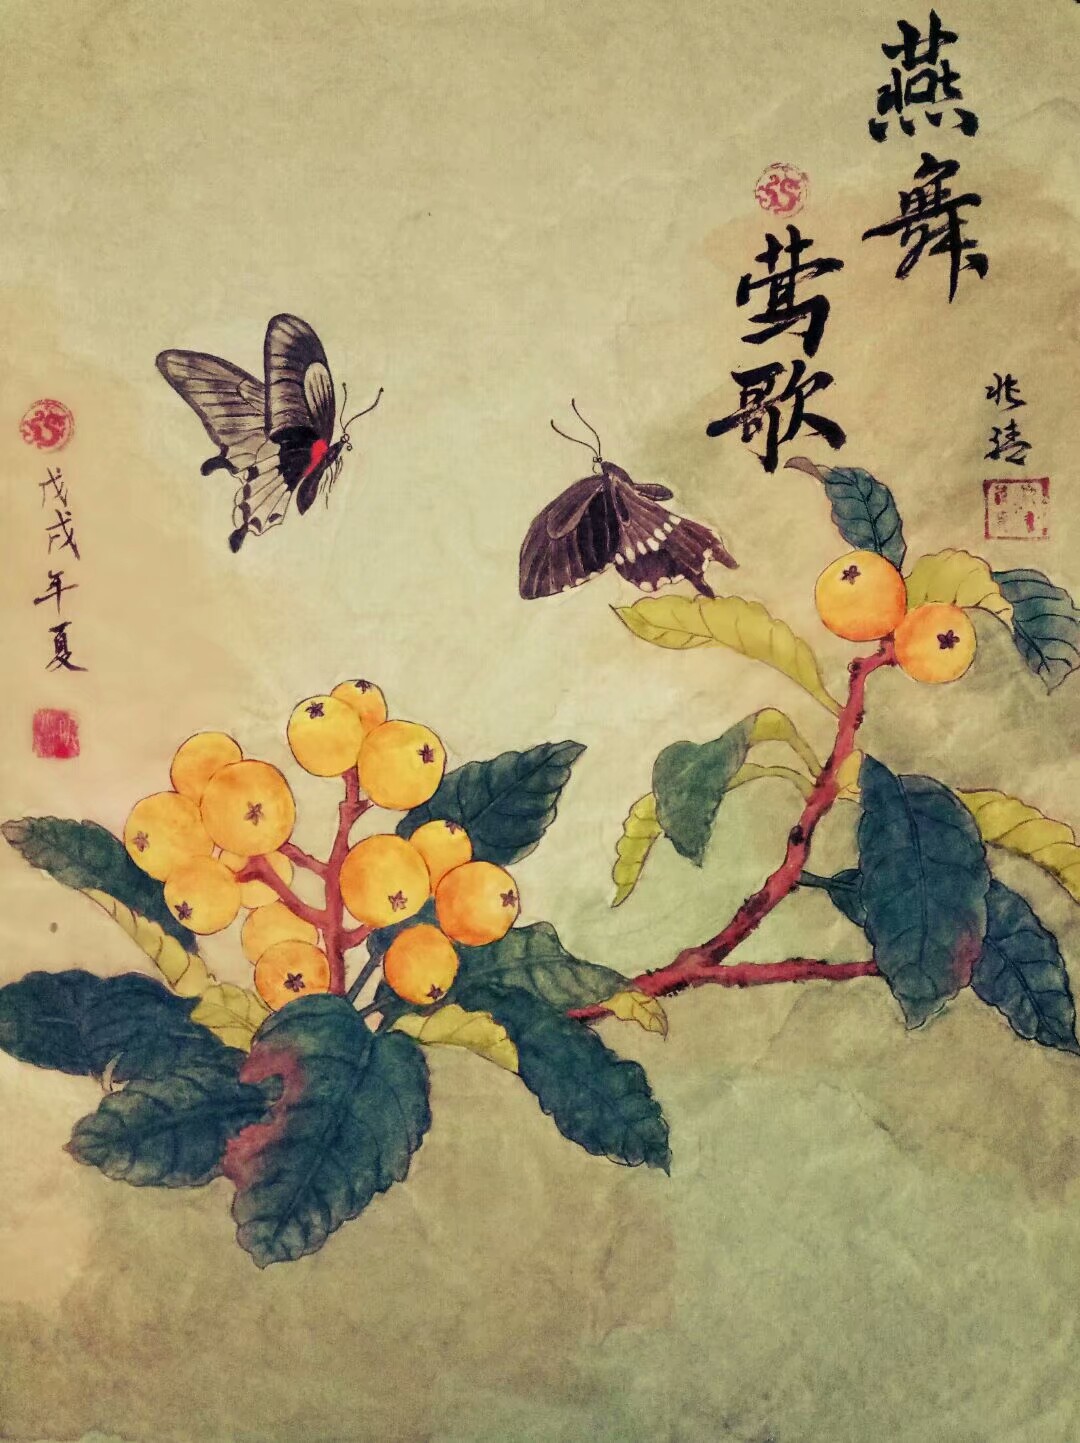 燕舞
莺歌
兆清
戊戌年夏